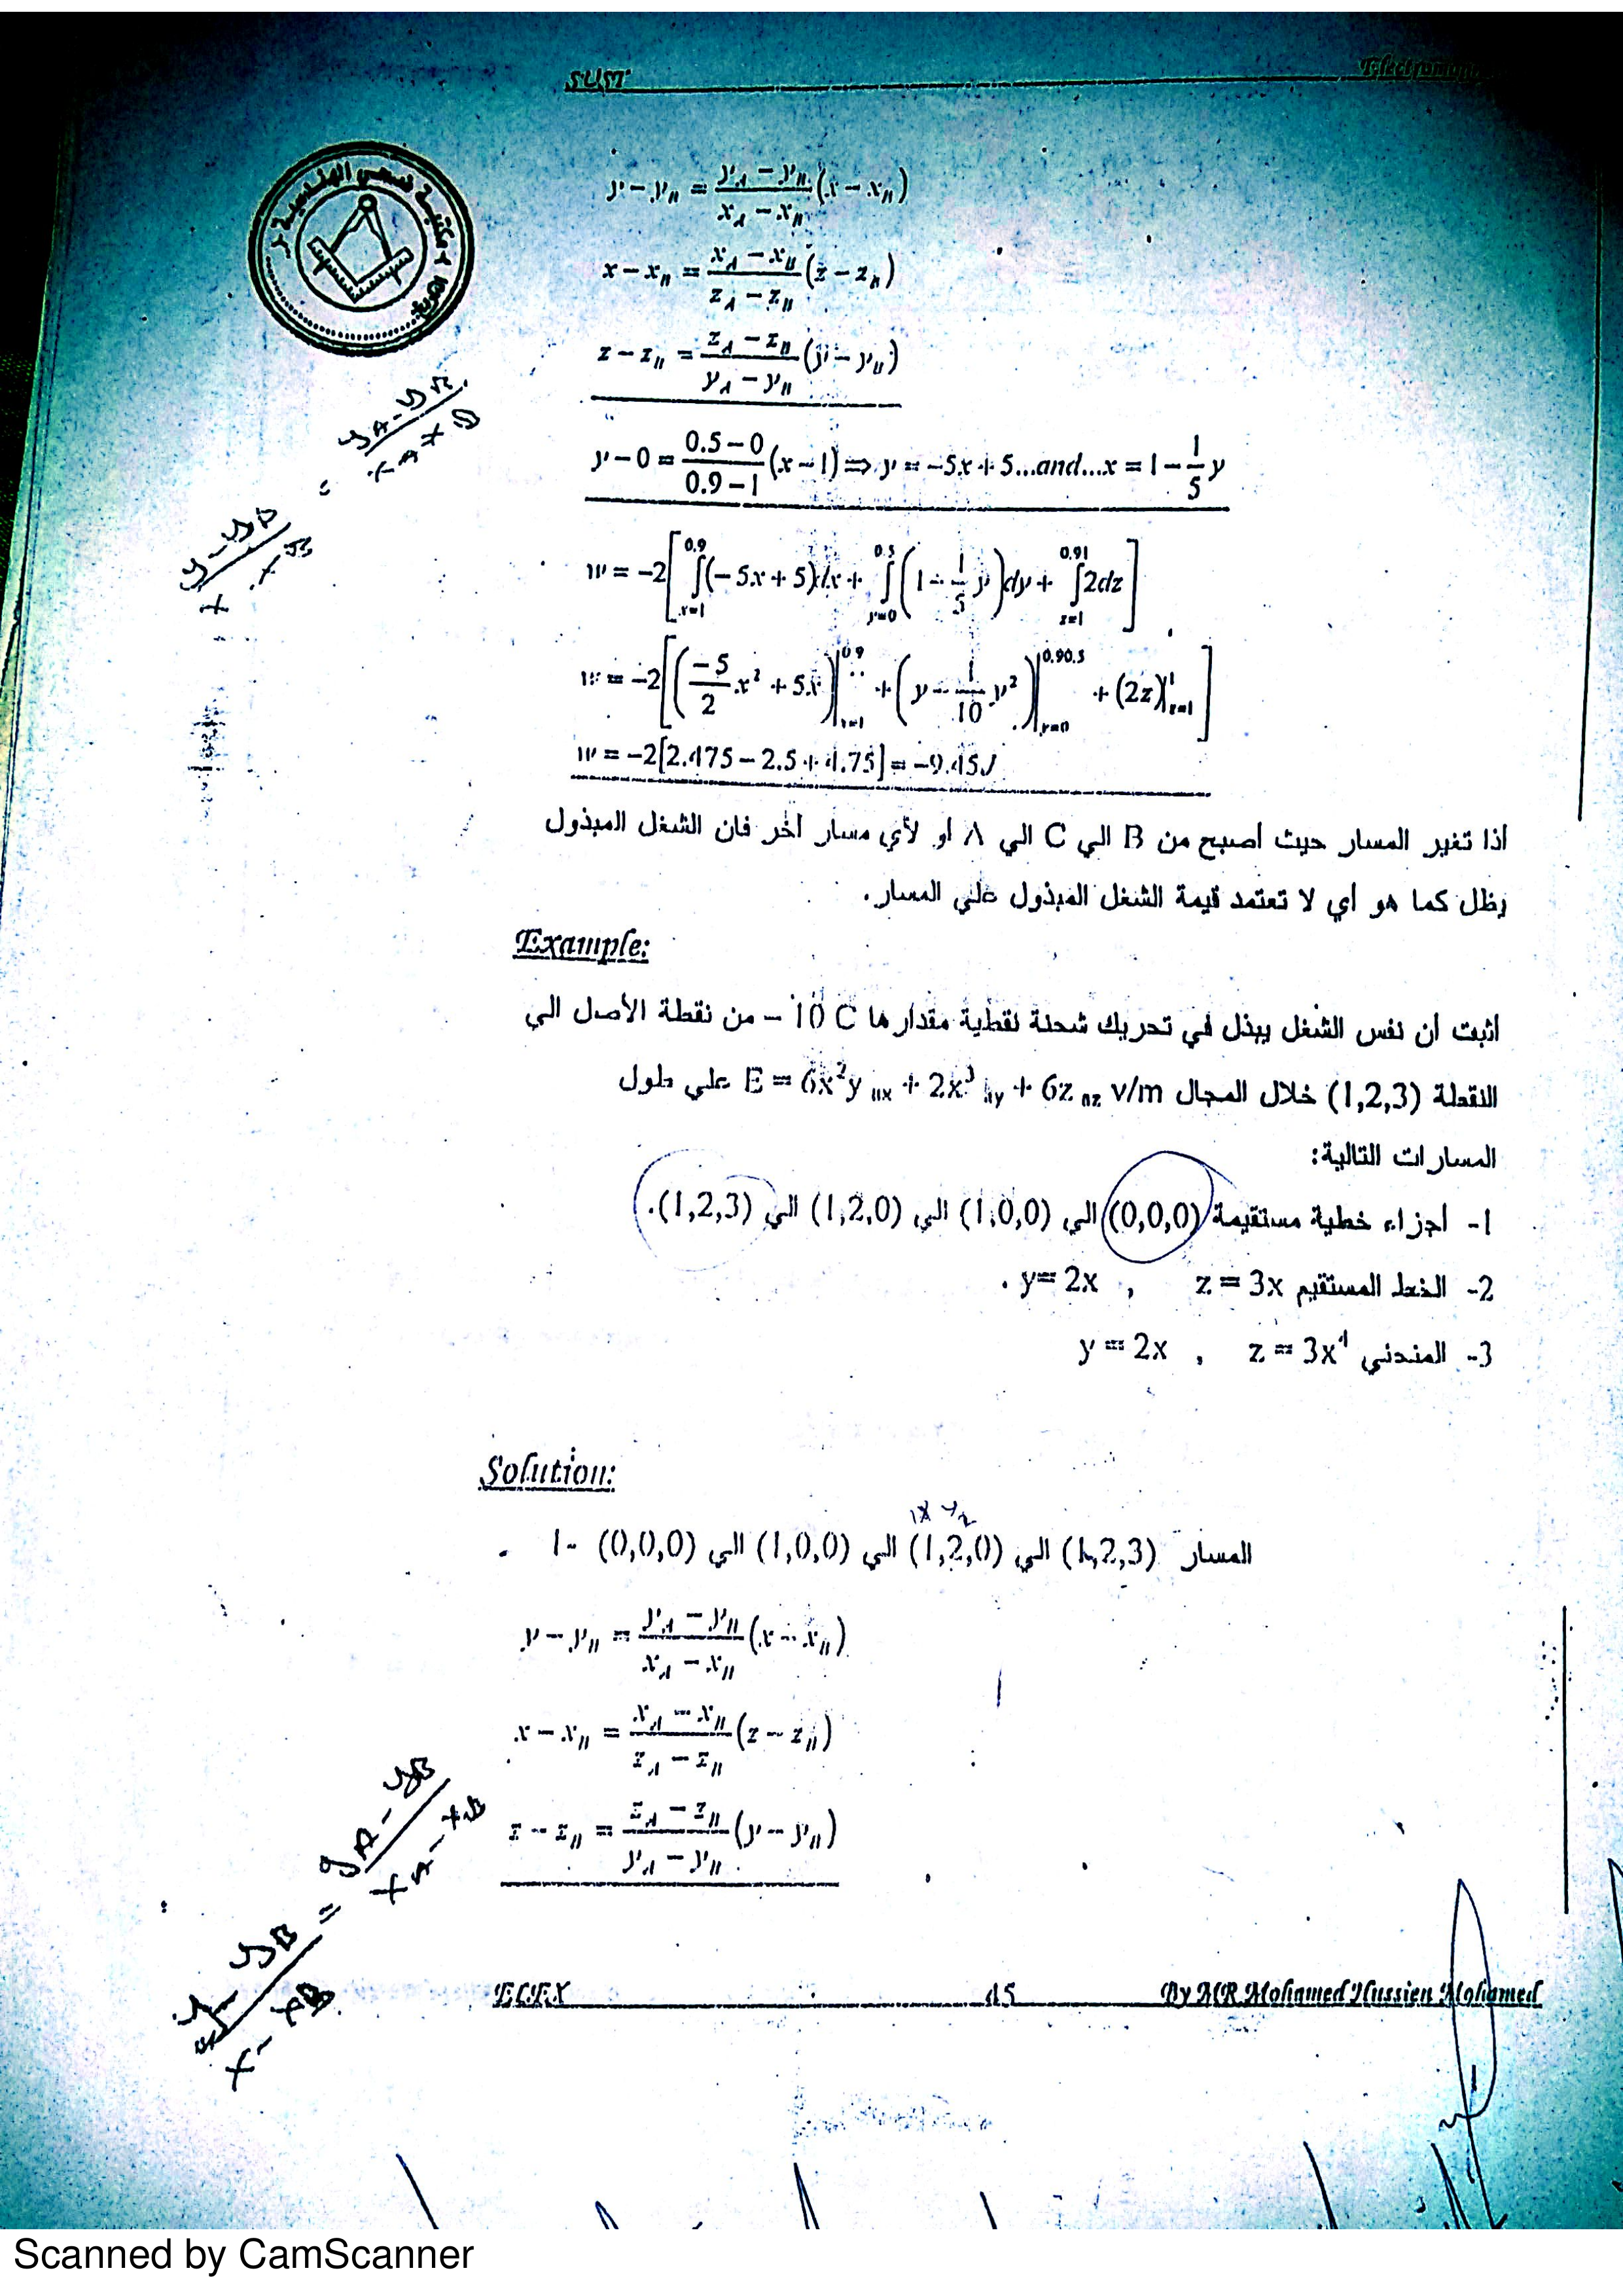 SUST
y - y_B = \frac{y_A - y_B}{x_A - x_B}(x - x_B)
x - x_B = \frac{x_A - x_B}{z_A - z_B}(z - z_B)
z - z_B = \frac{z_A - z_B}{y_A - y_B}(y - y_B)
y - 0 = \frac{0.5 - 0}{0.9 - 1}(x - 1) ⇒ y = -5x + 5...and...x = 1 - \frac{1}{5}y
w = -2[∫_{x=1}^{0.9}(-5x + 5)dx + ∫_{y=0}^{0.5}(1 - \frac{1}{5}y)dy + ∫_{z=1}^{0.91}2dz]
w = -2[(\frac{-5}{2}x² + 5x)|_{x=1}^{0.9} + (y - \frac{1}{10}y²)|_{y=0}^{0.90.5} + (2z)|_{z=1}^{1}]
w = -2[2.475 - 2.5 + 4.75] = -9.45J
أذا تغير المسار حيث أصبح من B الي C الي A أو لأي مسار أخر فان الشغل المبذول
يظل كما هو أي لا تعتمد قيمة الشغل المبذول علي المسار.
Example:
اثبت أن نفس الشغل يبذل في تحريك شحنة نقطية مقدارها 10 C – من نقطة الأصل الي
النقطة (1,2,3) خلال المجال E = 6x²y ax + 2x³ ay + 6z az v/m علي طول
المسارات التالية:
1- أجزاء خطية مستقيمة (0,0,0) الي (1,0,0) الي (1,2,0) الي (1,2,3).
2- الخط المستقيم z = 3x , y= 2x .
3- المنحني z = 3x⁴ , y = 2x
Solution:
المسار (1,2,3) الي (1,2,0) الي (1,0,0) الي (0,0,0) -1
y - y_B = \frac{y_A - y_B}{x_A - x_B}(x - x_B)
x - x_B = \frac{x_A - x_B}{z_A - z_B}(z - z_B)
z - z_B = \frac{z_A - z_B}{y_A - y_B}(y - y_B)
\frac{y - yB}{x - xB} = \frac{yA - yB}{xA - xB}
ELEX 45 By MR Mohamed Hussien Mohamed
Scanned by CamScanner